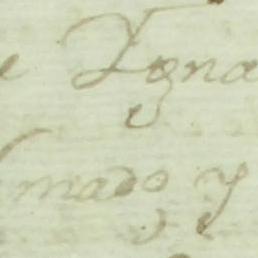 e Igna
mado y